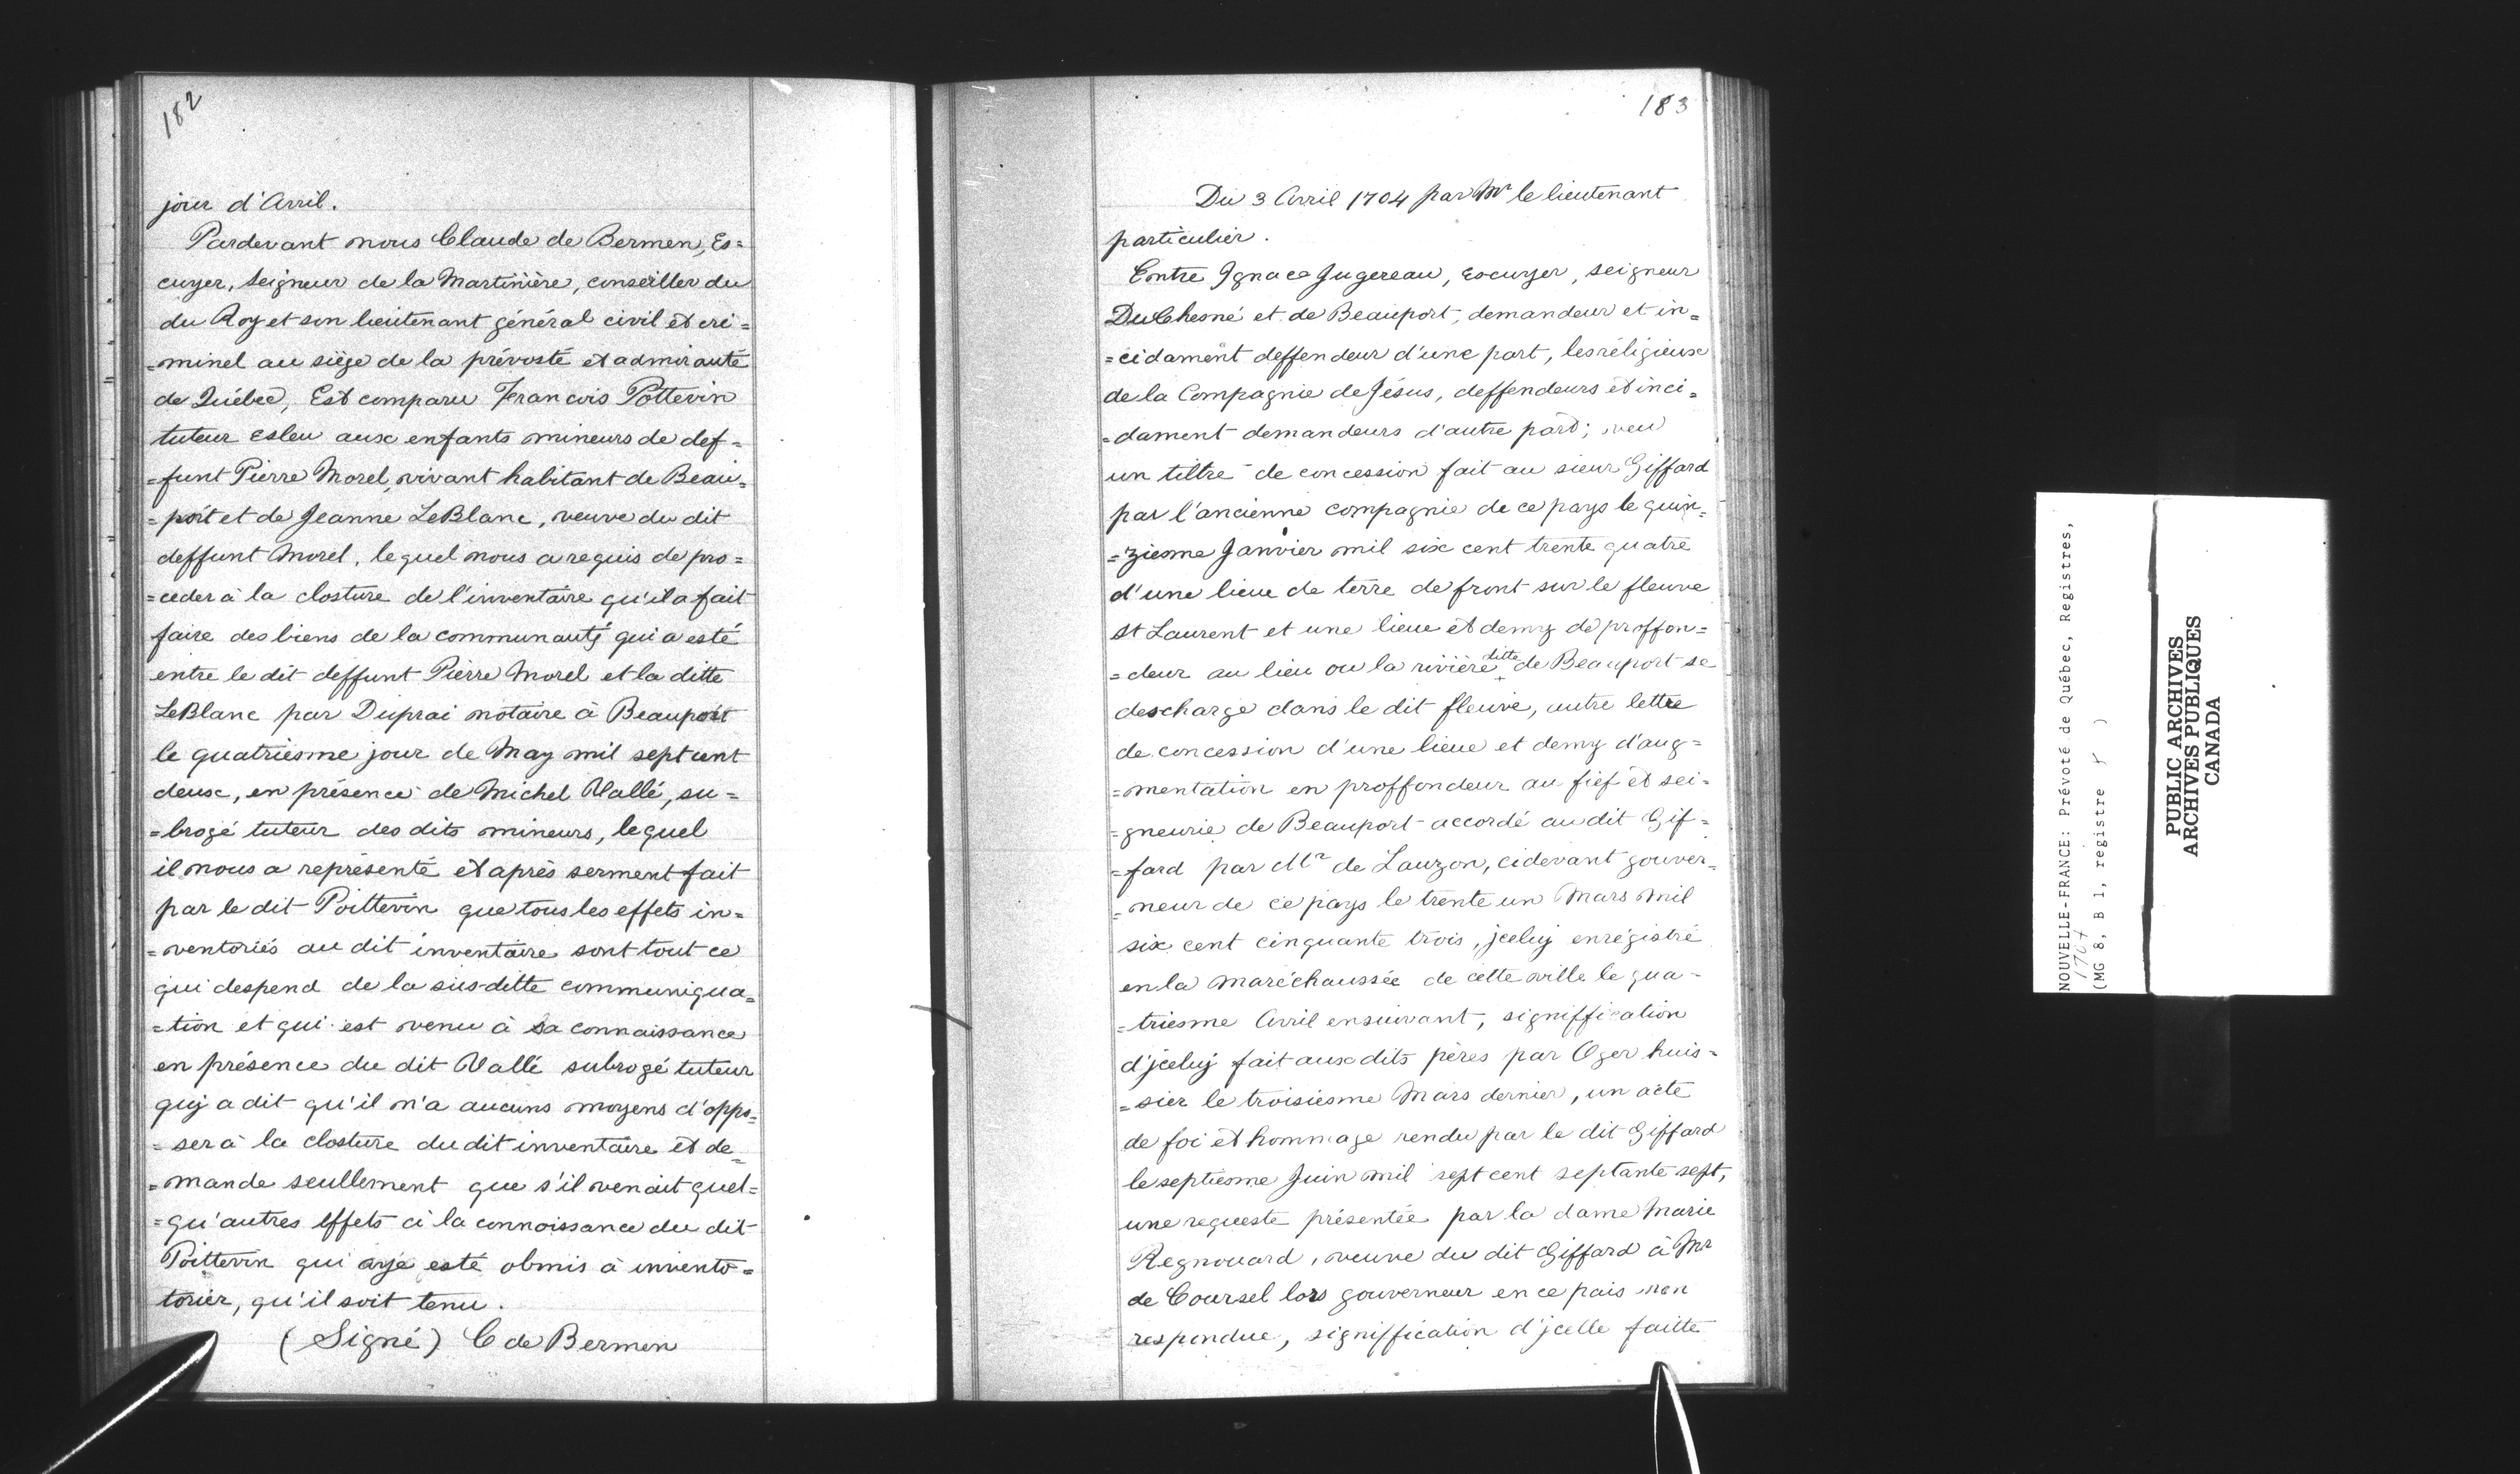 182
jour d'Avril.
Pardevant nous Claude de Bermen, Es=
cuyer, Seigneur de la Martinière, conseiller du
du Roy et son lieutenant général civil et cri=
=minel au siège de la prévosté et admirauté
de Québec, Est comparu Francois Pottevin
tuteur esleu aux enfants mineurs de def=
=funt Pierre Morel, vivant habitant de Beau=
=port et de Jeanne LeBlanc, veuve du dit
deffunt Morel, lequel nous a requis de pro=
=ceder à la closture de l'inventaire qu'il a fait
faire des biens de la communauté qui a esté
entre le dit deffunt Pierre Morel et la ditte
LeBlanc par Duprai notaire à Beauport
le quatriesme jour de May mil sept cent
deux, en présence de Michel Vallé, su=
=brogé tuteur des dits mineurs, lequel
il nous a représenté et après serment fait
par le dit Poittevin que tous les effets in=
=ventoriés au dit inventaire sont tout ce
qui despend de la sus-ditte communiqua=
=tion et qui est venu à sa connaissance
en présence du dit Vallé subrogé tuteur
quj a dit qu'il n'a aucuns moyens d'oppo=
=ser à la closture du dit inventaire et de=
=mande seullement que s'il venait quel=
=qu'autres effets à la connoissance du dit
Poittevin qui aye esté obmis à invento=
torier, qu'il soit tenu.
(Signé) C de Bermen
183
Du 3 Avril 1704 par Mr le lieutenant
particulier.
Entre Ignace Jugereau, escuyer, seigneur
DuChesné et de Beauport, demandeur et in=
=cidament deffendeur d'une part, les réligieux
de la Compagnie de Jésus, deffendeurs et inci=
=dament demandeurs d'autre part; veu
un tiltre de concession fait au sieur Giffard
par l'ancienne compagnie de ce pays le quin=
=ziesme Janvier mil six cent trente quatre
d'une lieue de terre de front sur le fleuve
St Laurent et une lieue et demy de proffon=
=deur au lieu ou la rivière ditte de Beauport se
descharge dans le dit fleuve, autre lettre
de concession d'une lieue et demy d'aug=
=mentation en proffondeur au fief et sei=
=gneurie de Beauport accordé au dit Gif=
=fard par Mr de Lauzon, cidevant gouver=
=neur de ce pays le trente un Mars mil
six cent cinquante trois, jceluj enrégistré
en la maréchaussée de cette ville le qua=
=triesme Avril ensuivant, signiffication
d'jceluj fait aux dits pères par Oger huis=
=sier le troisiesme Mars dernier, un acte
de foi et hommage rendu par le dit Giffard
le septiesme Juin mil sept cent septante sept,
une requeste présentée par la dame Marie
Regnouard, veuve du dit Giffard à Mr
de Coursel lors gouverneur en ce pais non
respondue, signiffication d'jcelle faitte
NOUVELLE-FRANCE: Prévoté de Québec, Registres,
1704
(MG 8, B 1, registre )
PUBLIC ARCHIVES
ARCHIVES PUBLIQUES
CANADA